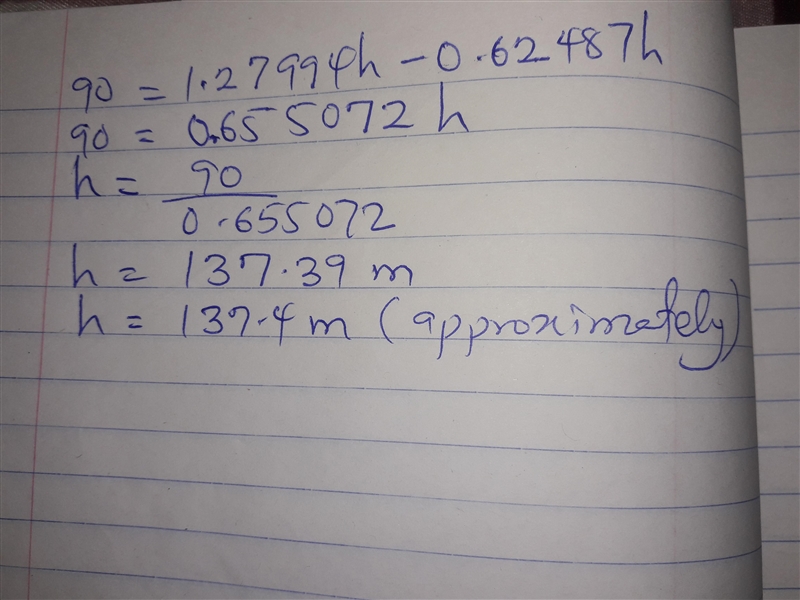 90 = 1.27994h - 0.62487h
90 = 0.655072 h
h = 90
0.655072
h = 137.39 m
h = 137.4 m (approximately)